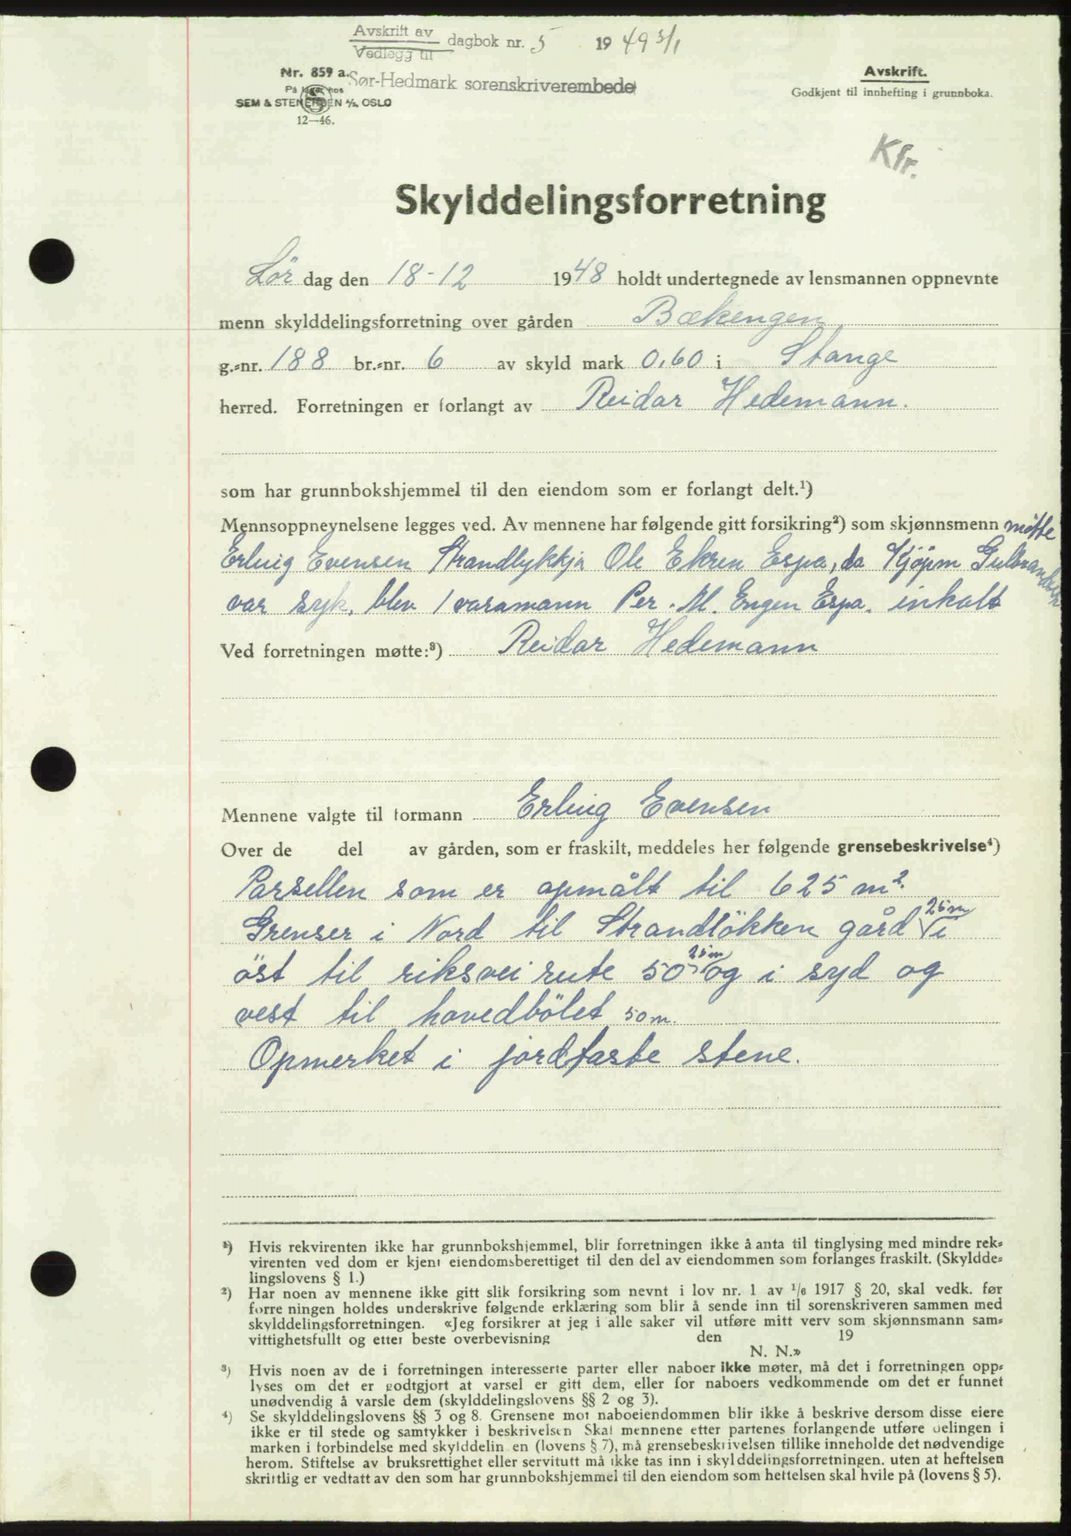 Avskrift av
Vedlegg til dagbok nr. 5 1949 3/1
Sør-Hedmark sorenskriverembede
Nr. 859 a.
På lager hos
SEM & STENERSEN A/S, OSLO
12—46.
Avskrift.
Godkjent til innhefting i grunnboka.
Kfr.
Skylddelingsforretning
Lör dag den 18-12 1948 holdt undertegnede av lensmannen oppnevnte
menn skylddelingsforretning over gården Bækengen
g.-nr. 188 br.-nr. 6 av skyld mark 0,60 i Stange
herred. Forretningen er forlangt av Reidar Hedemann.
som har grunnbokshjemmel til den eiendom som er forlangt delt.¹)
Mennsoppneynelsene legges ved. Av mennene har følgende gitt forsikring²) som skjønnsmenn møtte
Erling Evensen Strandlykkja Ole Ekren Espa, da Kjøpm Gulbrandsen
var syk, blev 1 varamann Per. M. Engen Espa. inkalt
Ved forretningen møtte:³) Reidar Hedemann
Mennene valgte til formann Erling Evensen
Over de del av gården, som er fraskilt, meddeles her følgende grensebeskrivelse⁴)
Parsellen som er opmålt til 625 m².
Grenser i Nord til Strandlökken gård 25 m i
öst til riksvei rute 50 25 m og i syd og
vest til hovedbölet 50 m.
Opmerket i jordfaste stene.
¹) Hvis rekvirenten ikke har grunnbokshjemmel, blir forretningen ikke å anta til tinglysing med mindre rek-
virenten ved dom er kjent eiendomsberettiget til den del av eiendommen som forlanges fraskilt. (Skyldde-
lingslovens § 1.)
²) Har noen av mennene ikke gitt slik forsikring som nevnt i lov nr. 1 av 1/6 1917 § 20, skal vedk. før
forre ningen holdes underskrive følgende erklæring som blir å sende inn til sorenskriveren sammen med
skylddelingsforretningen. «Jeg forsikrer at jeg i alle saker vil utføre mitt verv som skjønnsmann sam-
vittighetsfullt og etter beste overbevisning den 19
N. N.»
³) Hvis noen av de i forretningen interesserte parter eller naboer ikke møter, må det i forretningen opp-
lyses om det er godtgjort at varsel er gitt dem, eller for naboers vedkommende om det er funnet
unødvendig å varsle dem (skylddelingslovens §§ 2 og 3).
⁴) Se skylddelingslovens §§ 3 og 8. Grensene mot naboeiendommen blir ikke å beskrive dersom disse eiere
ikke er til stede og samtykker i beskrivelsen Skal mennene etter partenes forlangende utføre delingen i
marken i forbindelse med skylddelin en (lovens § 7), må grensebeskrivelsen tillike inneholde det nødvendige
herom. Stiftelse av bruksrettighet eller servitutt må ikke tas inn i skylddelingsforretningen, uten at heftelsen
skriftlig er vedtatt av den som har grunnbokshjemmel til den eiendom som heftelsen skal hvile på (lovens § 5).